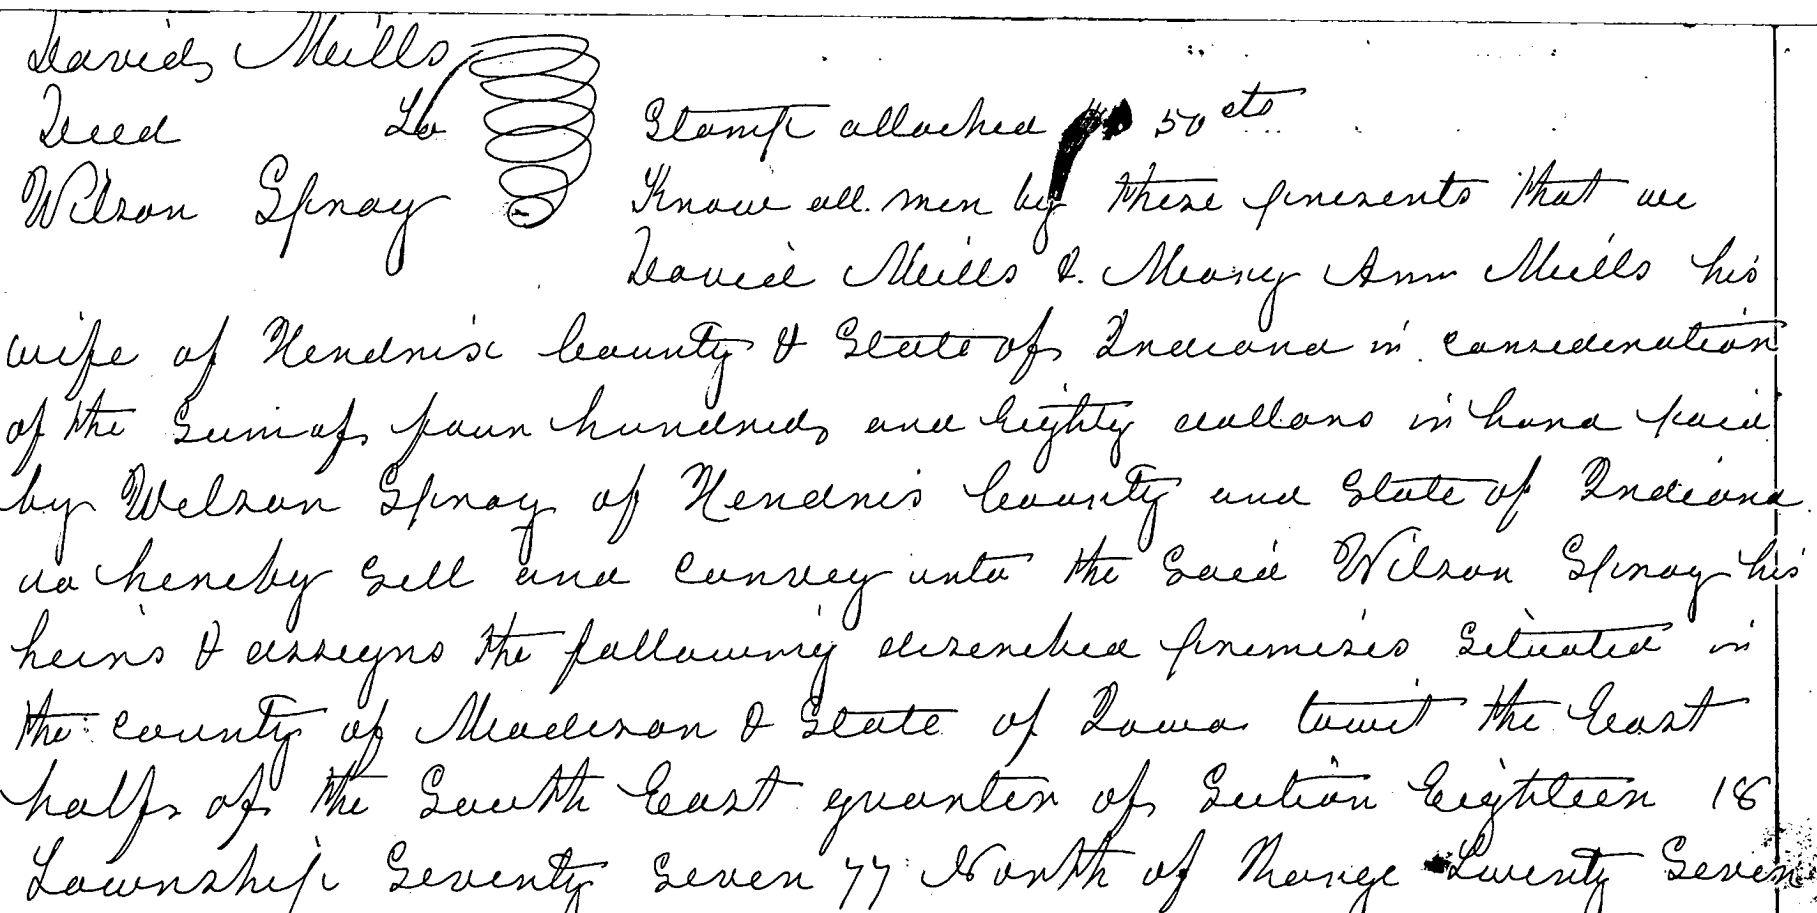 David Mills
Deed To Stamp attached 50 cts
Wilson Spray Know all men by these presents that we
David Mills & Mary Ann Mills his
wife of Hendrix County & State of Indiana in consideration
of the Sum of four hundred and Eighty dollars in hand paid
by Wilson Spray of Hendris County and State of Indiana
do hereby Sell and Convey unto the Said Wilson Spray his
heirs & assigns the following described premises Situated in
the County of Madison & State of Iowa towit the East
half of the South East quarter of Section Eighteen 18
Township Seventy Seven 77 North of Range Twenty Seven